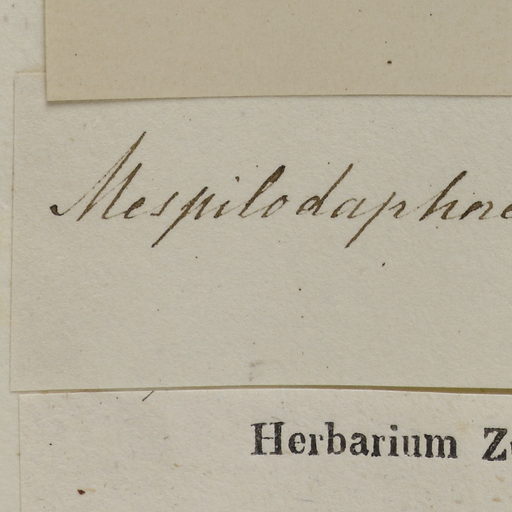 Mespilodaphne
Herbarium